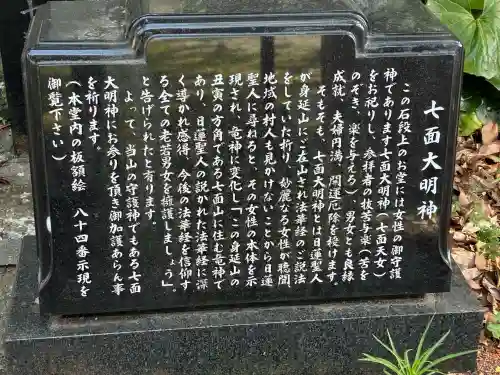 七面大明神
この石段上のお堂には女性の御守護
神であります七面大明神(七面天女)
をお祀りし、参拝者の抜苦与楽(苦を
のぞき、楽を与える)、男女とも良縁
成就、夫婦円満、開運厄除を授けます。
そもそも、七面大明神とは日蓮聖人
が身延山にご在山され法華経のご説法
をしていた折り、妙麗なる女性が聴聞
地域の村人も見かけないことから日蓮
聖人に尋ねると、その女性の本体を示
現され、竜神に変化し「この身延山の
丑寅の方角である七面山に住む竜神で
あり、日蓮聖人の説かれた法華経に深
く導かれ感得、今後の法華経を信仰す
る全ての老若男女を擁護しましょう」
と告げられたと有ります。
よって、当山の守護神でもある七面
大明神にお参りを頂き御加護あらん事
を祈ります。
(本堂内の板額絵 八十四番示現を
御覧下さい)